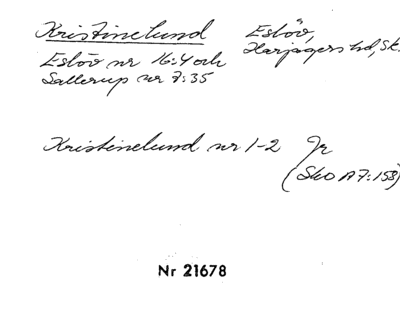 Kristinelund Eslöv,
Harjagers hd, Sk.
Eslöv nr 16:4 och
Sallerup nr 7:35
Kristinelund nr 1-2 Jr
(Sko A7:158)
Nr 21678